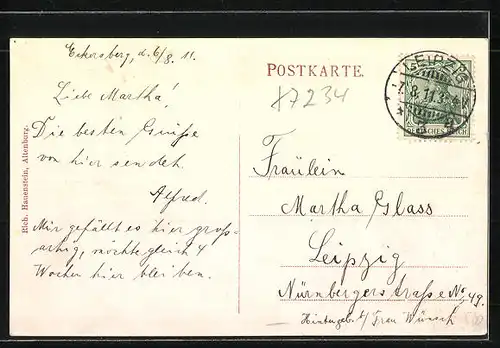 Eckersberg, d. 6/8. 11.
Liebe Martha!
Die besten Grüße
von hier sendet
Alfred.
Mir gefällt es hier groß-
artig, möchte gleich 4
Wochen hier bleiben.
Rich. Hauenstein, Altenburg.
POSTKARTE.
17234
LEIPZIG
7.8.11.3-4N
DEUTSCHES REICH
Fräulein
Martha Glass
Leipzig
Nürnbergerstraße No. 49.
Hintergeb. b/ Frau Wünsch